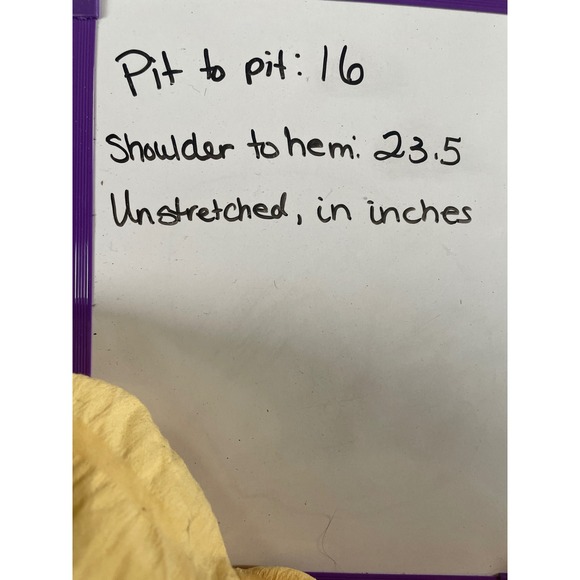 Pit to pit: 16
Shoulder to hem: 23.5
Unstretched, in inches